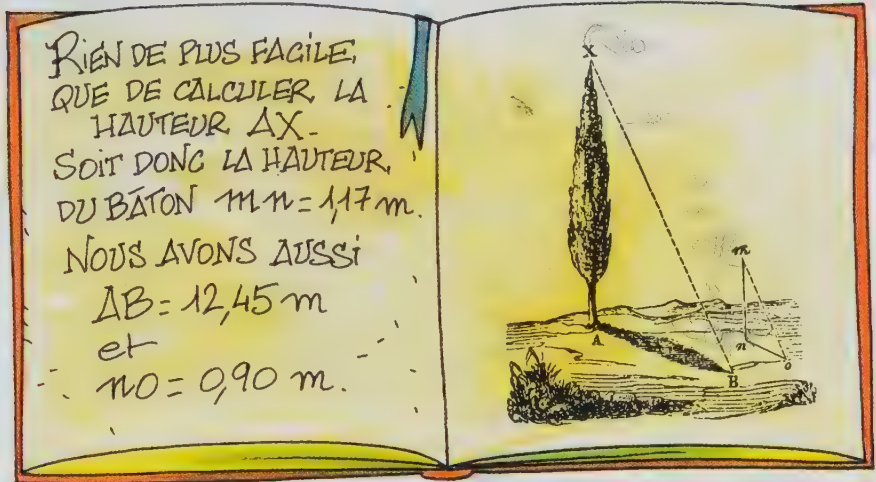 RIEN DE PLUS FACILE
QUE DE CALCULER LA
HAUTEUR AX.
SOIT DONC LA HAUTEUR
DU BÂTON mn = 1,17 m.
NOUS AVONS AUSSI
AB = 12,45 m
et
no = 0,90 m.
X
m
A
n
o
B